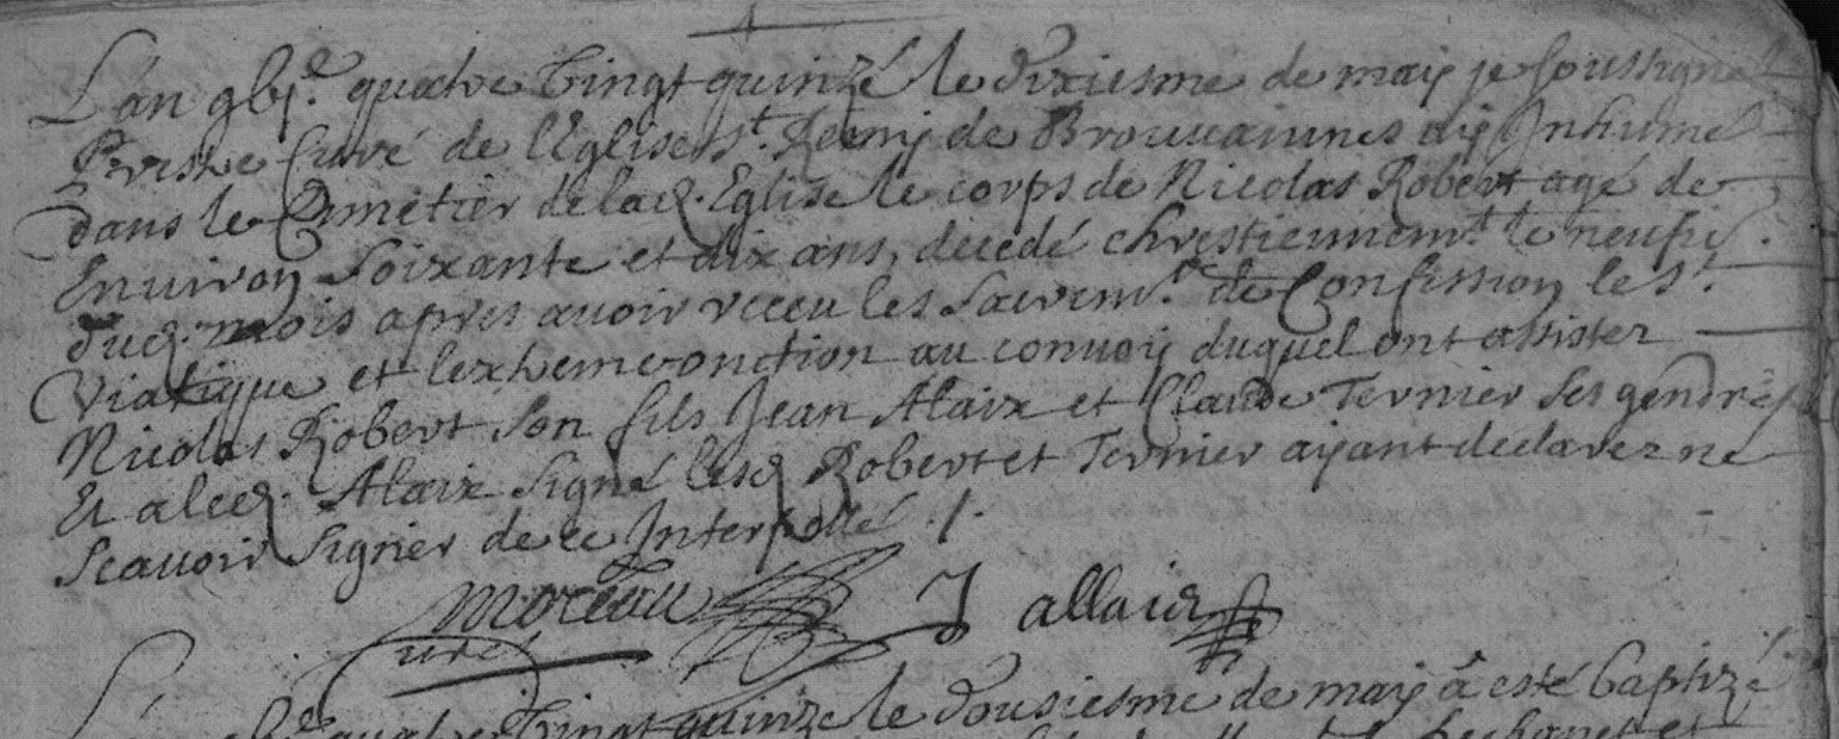 L'an gbj.e quatre vingt quinze le dixiesme de may je soussigné
Prestre Curé de l'Eglise St. Remy de Brouuainnes ay Inhumé
dans le Cimetier de lad. Eglise le corps de Nicolas Robert agé de
Enuiron soixante et dix ans, decedé chrestiennemt. le neufie.
dud. mois apres auoir receu les sacremt. de Confession le St.
Viatique et lextreme onction au conuoy duquel ont assister
Nicolas Robert son fils Jean Alaix et Claude Ternier ses gendres
Et a led. Alaix signé lesd Robert et Ternier ayant declarez ne
Scauoir signer de ce Interpellé ./.
Moreau J allaix
curé
quatre vingt quinze le dousiesme de may a esté baptizé
et